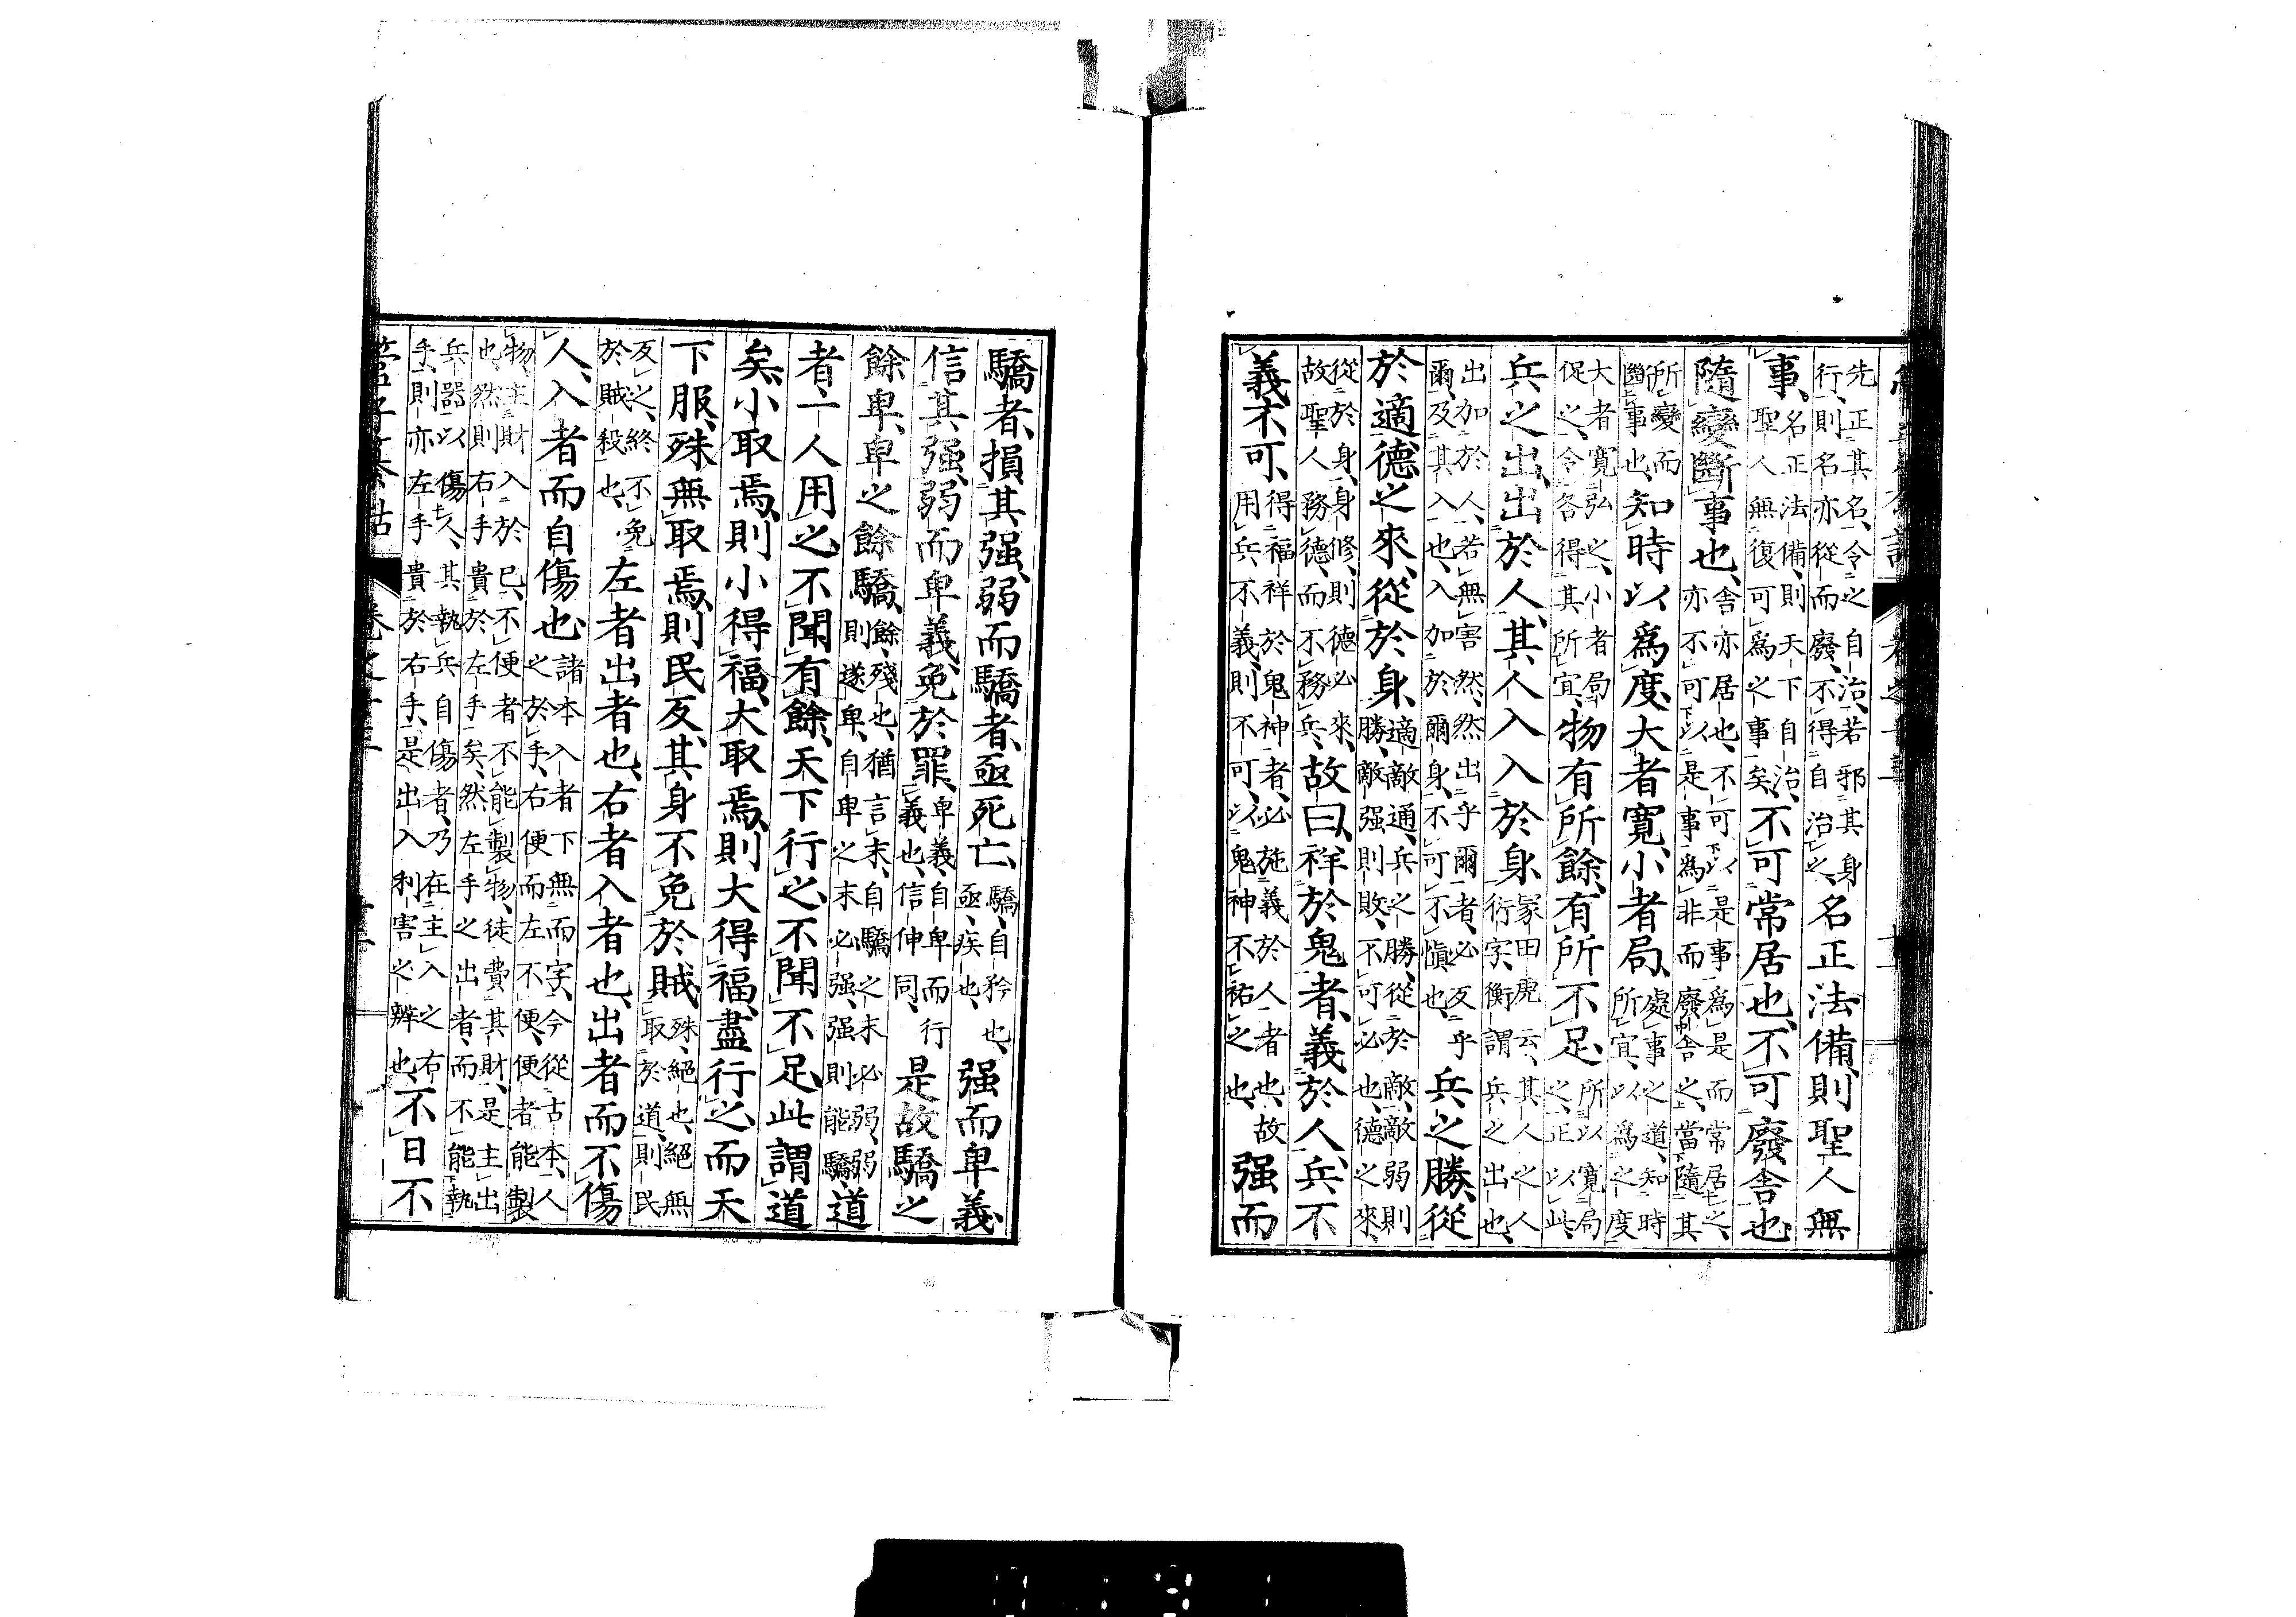 先正其名、令之自治、若邪其身
行、則名亦從而廢、不得自治之、
名正法備、則聖人無
事、
名正法備、則天下自治、
聖人無復可爲之事矣、
不可常居也、不可廢舍也、
隨變斷事也、
舍亦居也、不可以是事爲是而常居之、
亦不可以是事爲非而廢舍之、當隨其
所變而
斷事也、
知時以爲度、大者寬、小者局、
處事之道、知時
所宜、以爲之度
大者寬弘之、小者局
促之、令各得其所宜、
物有所餘、有所不足、
所以寬局
之、正以此、
兵之出、出於人、其人入、入於身、
冢田虎云、其人之人
衍字、衡謂兵之出也、
出加於人、若無害然、然出乎爾者、必反乎
爾、及其入也、入加於爾身、不可不愼也、
兵之勝、從
於適、德之來、從於身、
適敵通、兵之勝、從於敵、敵弱則
勝、敵强則敗、不可必也、德之來、
從於身、身修、則德必來、
故聖人務德、而不務兵、
故曰、祥於鬼者、義於人、兵不
義不可、
得福祥於鬼神者、必施義於人者也、故
用兵不義、則不可、以鬼神不祐之也、
强而
驕者、損其强、弱而驕者、亟死亡、
驕、自矜也、
亟、疾也、
强而卑義、
信其强、弱而卑義、免於罪、
卑義、自卑而行
義也、信伸同、
是故驕之
餘卑、卑之餘驕、
餘、殘也、猶言末、自驕之末必弱、弱
則遂卑、自卑之末必强、强則能驕、
道
者、一人用之、不聞有餘、天下行之、不聞不足、此謂道
矣、小取焉、則小得福、大取焉、則大得福、盡行之、而天
下服、殊無取焉、則民反、其身不免於賊、
殊、絕也、絕無
取於道、則民
反之、終不免
於賊殺也、
左者出者也、右者入者也、出者而不傷
人、入者而自傷也、
諸本入者下無而字、今從古本、人
之於手、右便而左不便、便者能製
物、主財入於己、不便者不能製物、徒費其財、是主出
也、然則右手貴於左手矣、然左手之出者、而不能執
兵器以傷人、其執兵自傷者、乃在主入之右
手、則亦左手貴於右手、是出入利害之辨也、
不日不
管子纂詁 卷之十三